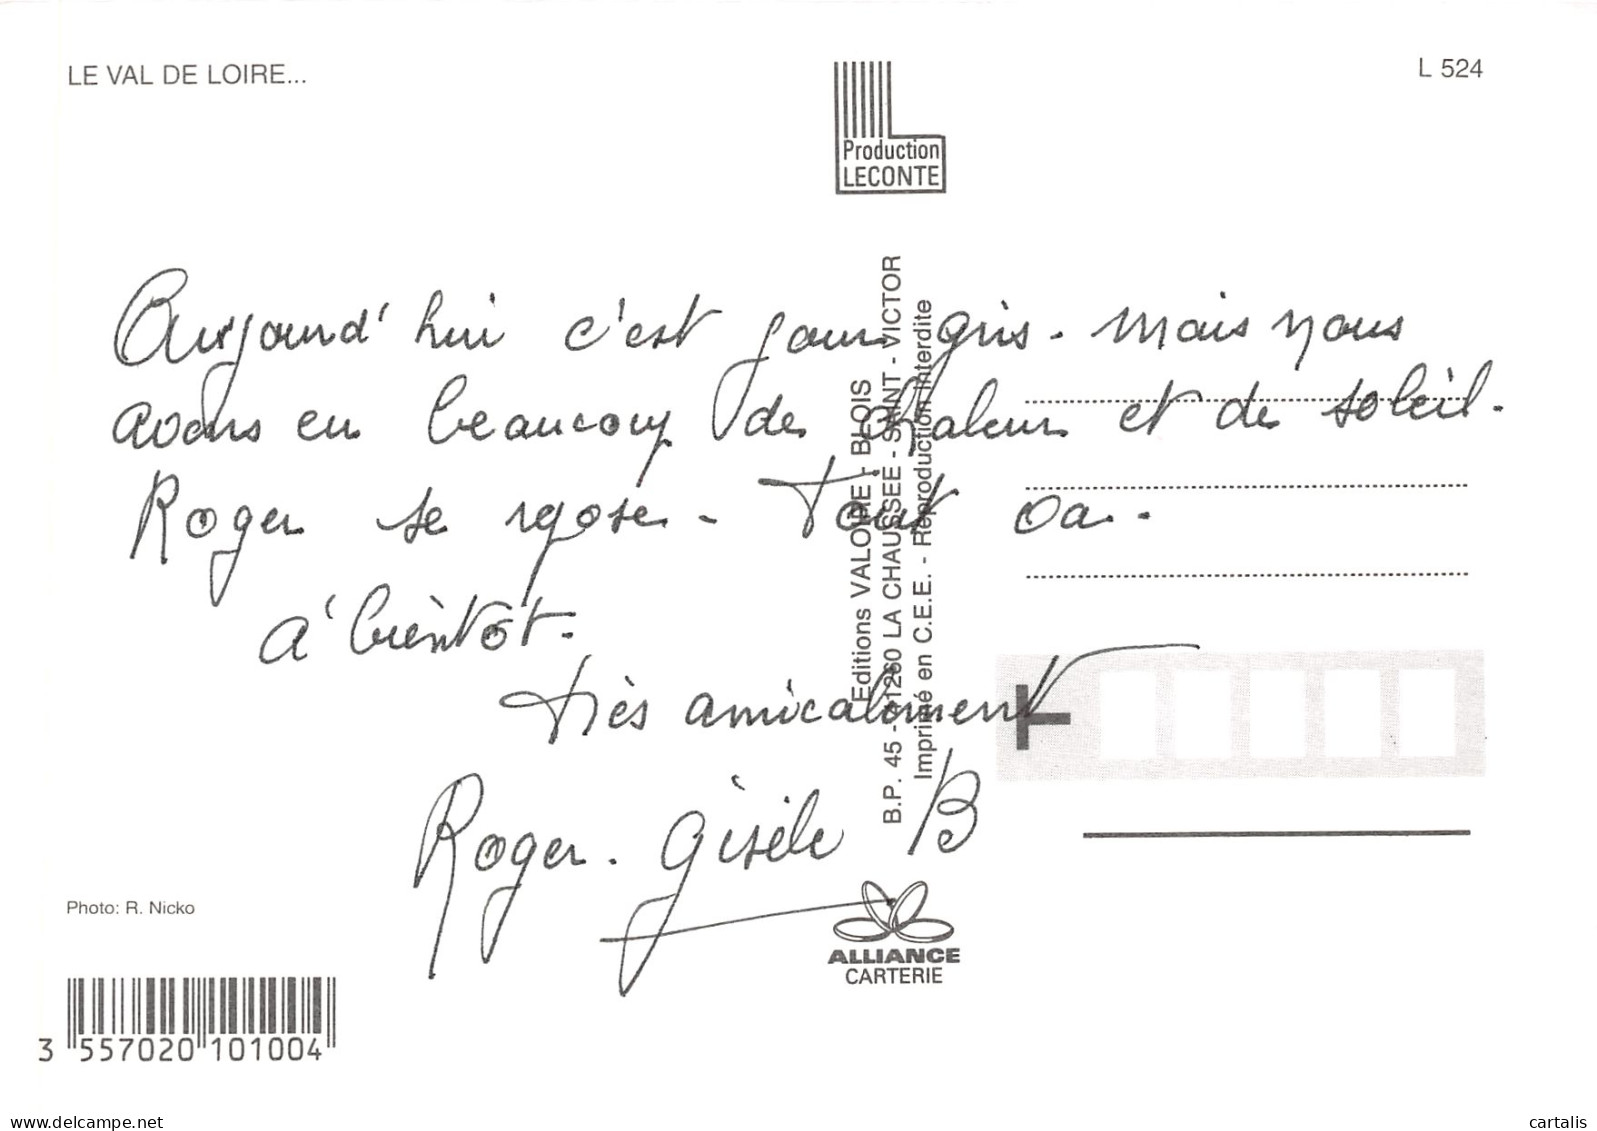 LE VAL DE LOIRE...
L 524
Production
LECONTE
Aujourd'hui c'est jour gris - mais nous
avons eu beaucoup de chaleur et de soleil.
Roger se repose - Tout va.
à bientôt.
très amicalement
Roger. Gisèle B
Editions VALOIRE - BLOIS
B.P. 45 - 41260 LA CHAUSSEE - SAINT - VICTOR
Imprimé en C.E.E. - Reproduction interdite
Photo: R. Nicko
ALLIANCE
CARTERIE
3 557020 101004
www.delcampe.net
cartalis